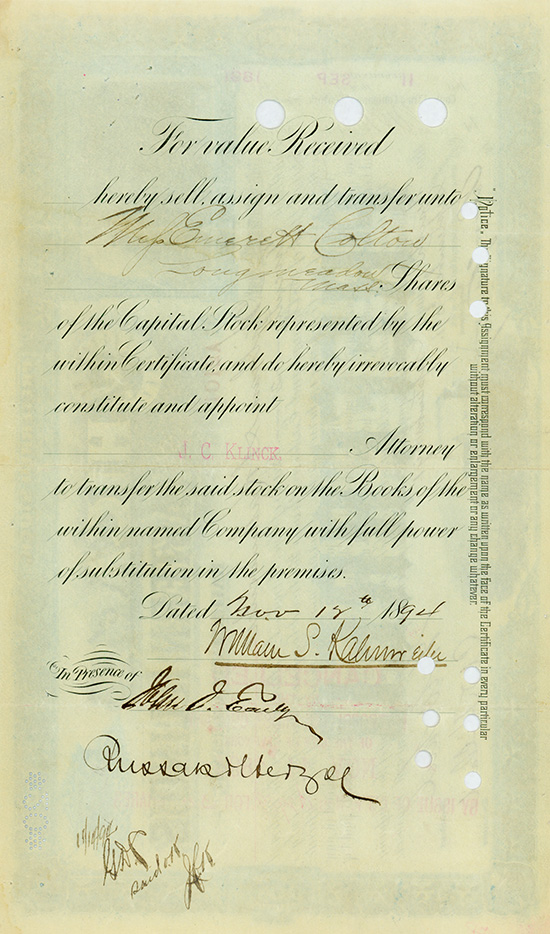 For value Received
hereby sell, assign and transfer unto
Everett Colton
Longmeadow
Mass. Shares
of the Capital Stock represented by the
within Certificate, and do hereby irrevocably
constitute and appoint
J. C. KLINCK. Attorney
to transfer the said stock on the Books of the
within named Company with full power
of substitution in the premises.
Dated Nov 12th 1894
William S.
In Presence of
John J.
Notice. The Signature to this Assignment must correspond with the name as written upon the face of the Certificate in every particular
without alteration or enlargement or any change whatever.